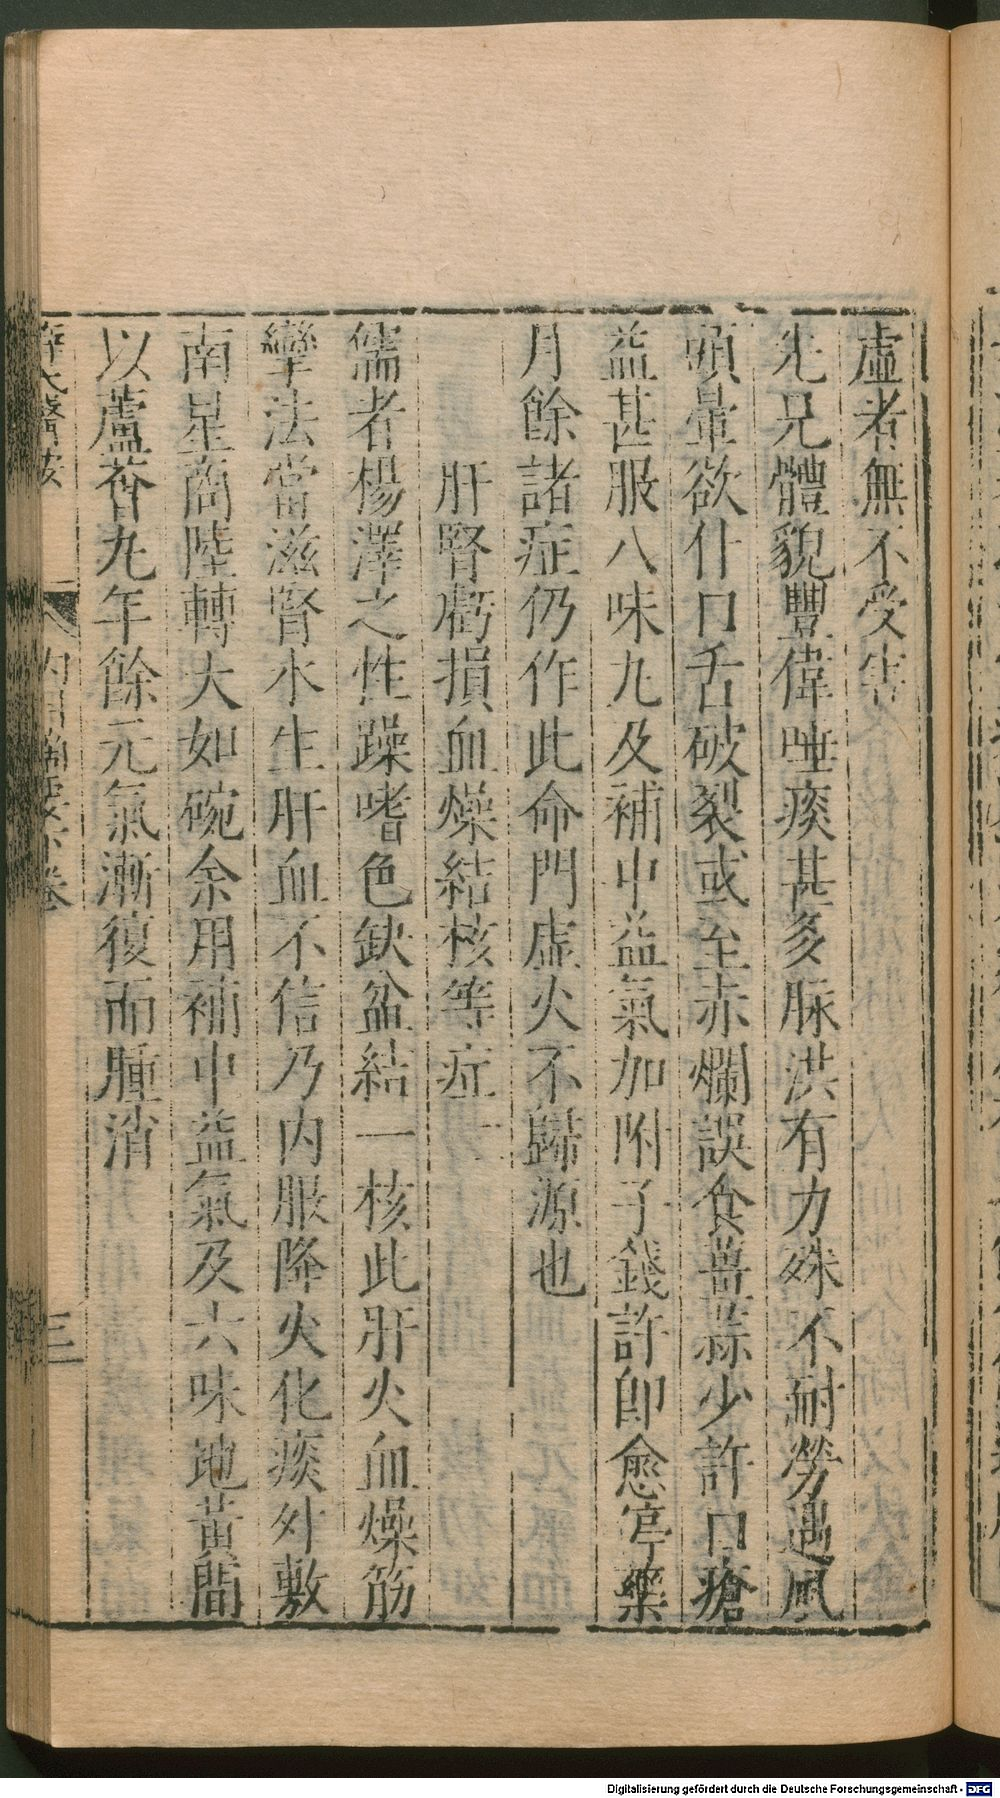 虛者無不受害
先兄體貌豐偉唾痰甚多脉洪有力殊不耐勞遇風
頭暈欲仆口舌破裂或至赤爛誤食薑蒜少許口瘡
益甚服八味丸及補中益氣加附子錢許卽愈停藥
月餘諸症仍作此命門虛火不歸源也
肝腎虧損血燥結核等症一
儒者楊澤之性躁嗜色缺盆結一核此肝火血燥筋
攣法當滋腎水生肝血不信乃内服降火化痰外敷
南星商陸轉大如碗余用補中益氣及六味地黃間
以蘆薈丸年餘元氣漸復而腫消
薛氏醫按
内科摘要下卷
三
Digitalisierung gefördert durch die Deutsche Forschungsgemeinschaft - DFG